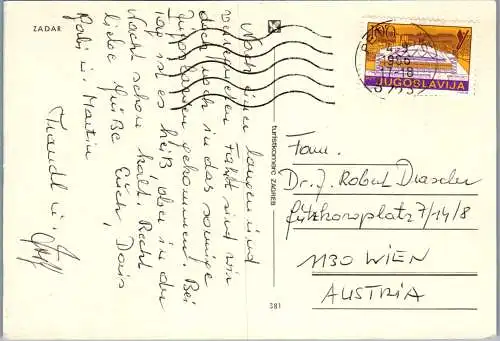 ZADAR
Nach einer langen und
verkehrsreichen Fahrt sind wir
doch noch in das sonnige
Jugoslawien gekommen. Bei
Tag ist es heiß, aber in der
Nacht schon kalt. Recht
liebe Grüße Euch, Doris
Robi u. Martin
Traudl u.
turistkomerc ZAGREB
381
JUGOSLAVIJA
Fam.
Dr. J. Robert Drasche
platz 7/14/8
1130 WIEN
AUSTRIA